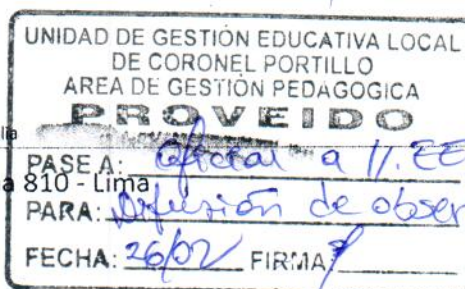 UNIDAD DE GESTIÓN EDUCATIVA LOCAL
DE CORONEL PORTILLO
AREA DE GESTIÓN PEDAGOGICA
PROVEIDO
lia
PASE A: Oficiar a II.EE
a 810 - Lima
PARA: Difusión de obser
FECHA: 26/02 FIRMA: